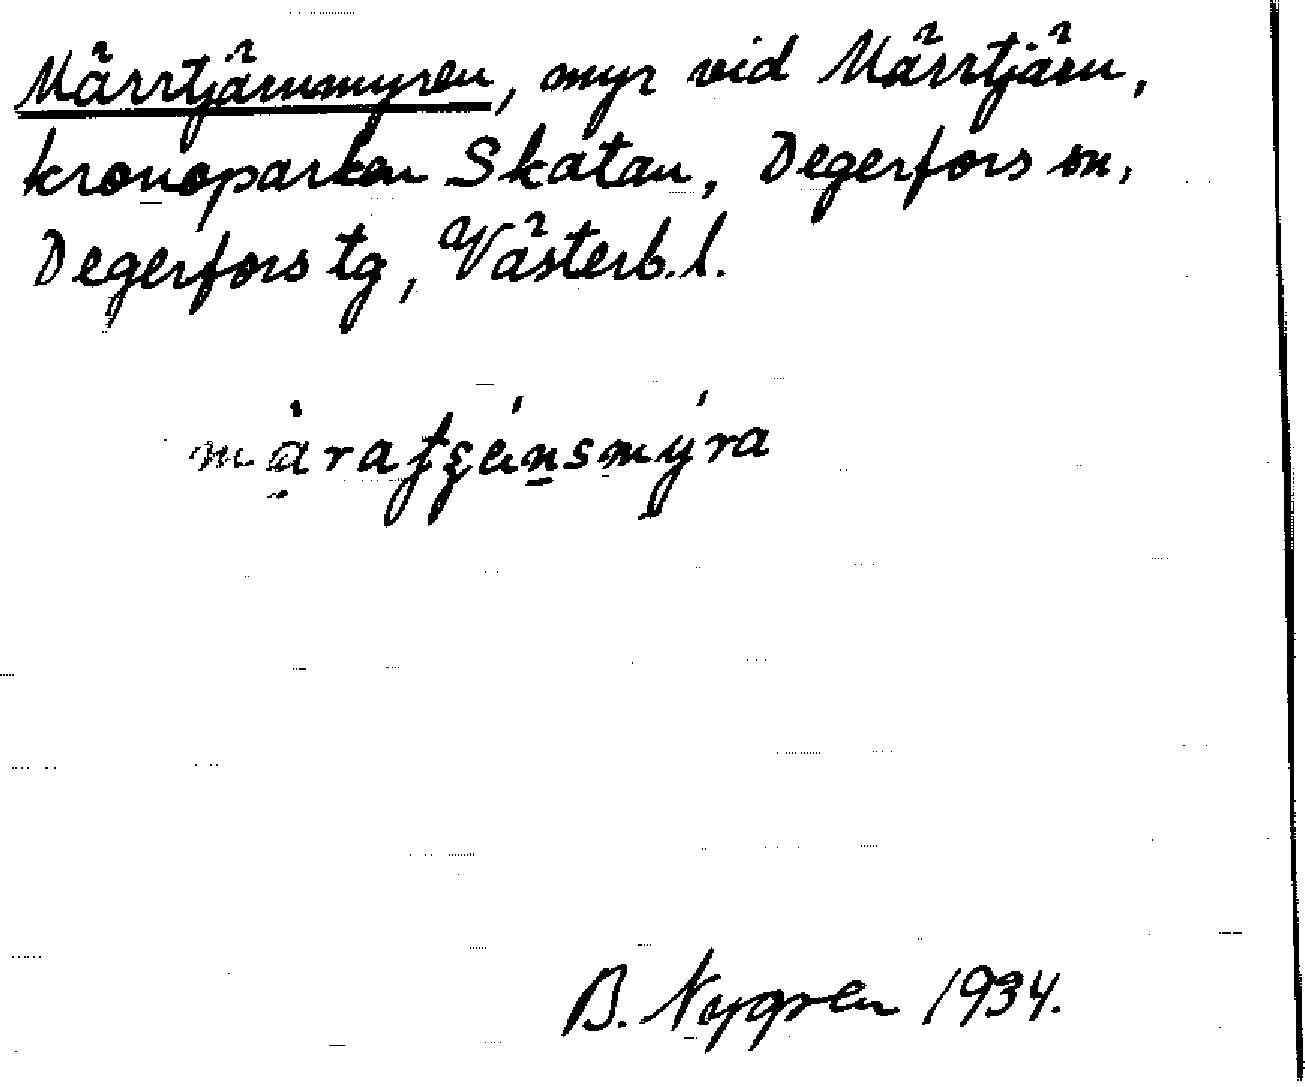 Märrtjärnmyren, myr vid Märrtjärn,
kronoparken Skatan, Degerfors sn,
Degerfors tg, Västerb. l.
B. Nygren 1934.